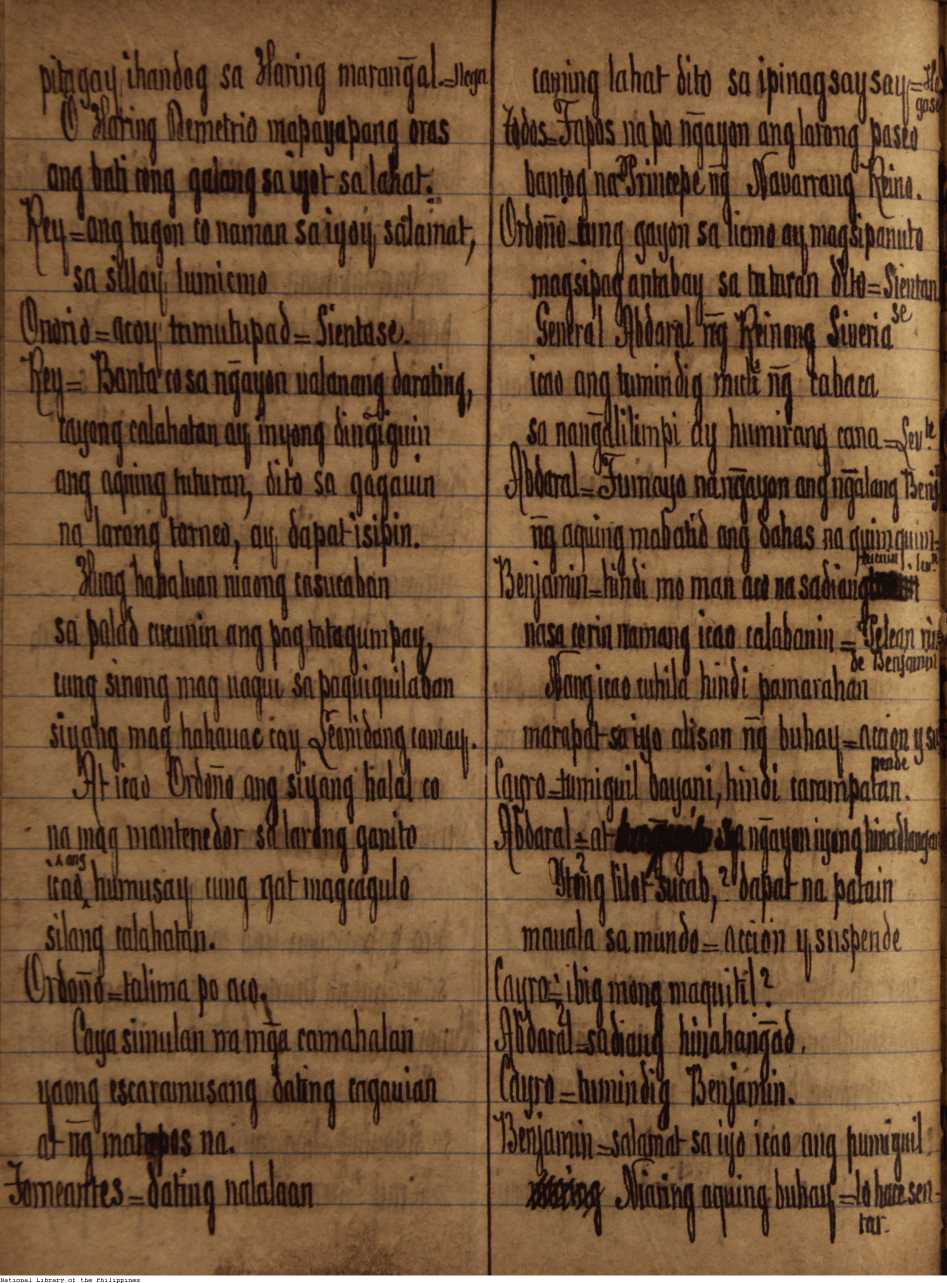 pitagay ihandog sa Haring marang̃al=llega
O Haring Demetrio mapayapang oras
ang bati cong galang sa iyot sa lahat.
Rey=ang tugon co naman sa iyoy, salamat,
sa sillay lumicmo
Onorio=acoy tumutupad=Sientase.
Rey=Banta co sa ng̃ayon ualanang darating,
tayong calahatan ay inyong ding̃iguin
ang aquing tuturan, dito sa gagauin
na larong torneo, ay dapat isipin.
Huag hahaluan niaong casucaban
sa palad cucunin ang pagtatagumpay,
cung sinong mag uagui sa paquiquilaban
siyang mag hahauac cay Leonidang camay.
At icao Ordoño ang siyang halal co
na mag mantenedor sa larong ganito
icao, ang humusay cung qat magcagulo
silang calahatan.
Ordoño=talima po aco.
Caya simulan na mg̃a camahalan
yaong escaramusang dating cagauian
at ng̃ matapos na.
Torneantes=dating nalalaan
caming lahat dito sa ipinagsaysay=
Todos=Tapos na po ng̃ayon ang larong paseo
bantog na Principe ng̃ Navarrang Reino.
Ordoño=cung gayon sa licmo ay magsipanuto
magsipag antabay sa tuturan dito=Sientan
se
General Abdaral ng̃ Reinong Siveria
icao ang tumindig muli ng̃ cabaca
sa nang̃alilimpi ay humirang cana=
Abdaral=Tumayo na ng̃ayon ang ng̃alang
ng̃ aquing mabatid ang dahas na
Benjamin=hindi mo man aco na sadiang
nasa corin namang icao calabanin=Pelean
de Benjamin
Nang icao cuhila hindi pamarahan
marapat sa iyo alisan ng̃ buhay=accion y sus
pende
Cayro=tumiguil bayani, hindi carampatan.
Abdaral=at ng̃ayon iyong
Ytong lilot sucab, dapat na patain
mauala sa mundo=accion y suspende
Cayro=ibig mong maquitil?
Abdaral=sadiang hinahang̃ad.
Cayro=tumindig Benjamin.
Benjamin=salamat sa iyo icao ang pumiguil
Niaring aquing buhay=lo hace sen-
tar.
National Library of the Philippines